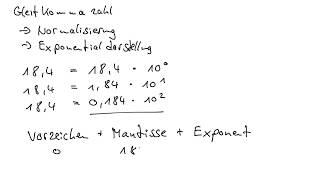 Gleitkommazahl
→ Normalisierung
→ Exponentialdarstellung
18,4 = 18,4 · 10⁰
18,4 = 1,84 · 10¹
18,4 = 0,184 · 10²
Vorzeichen + Mantisse + Exponent
0 18